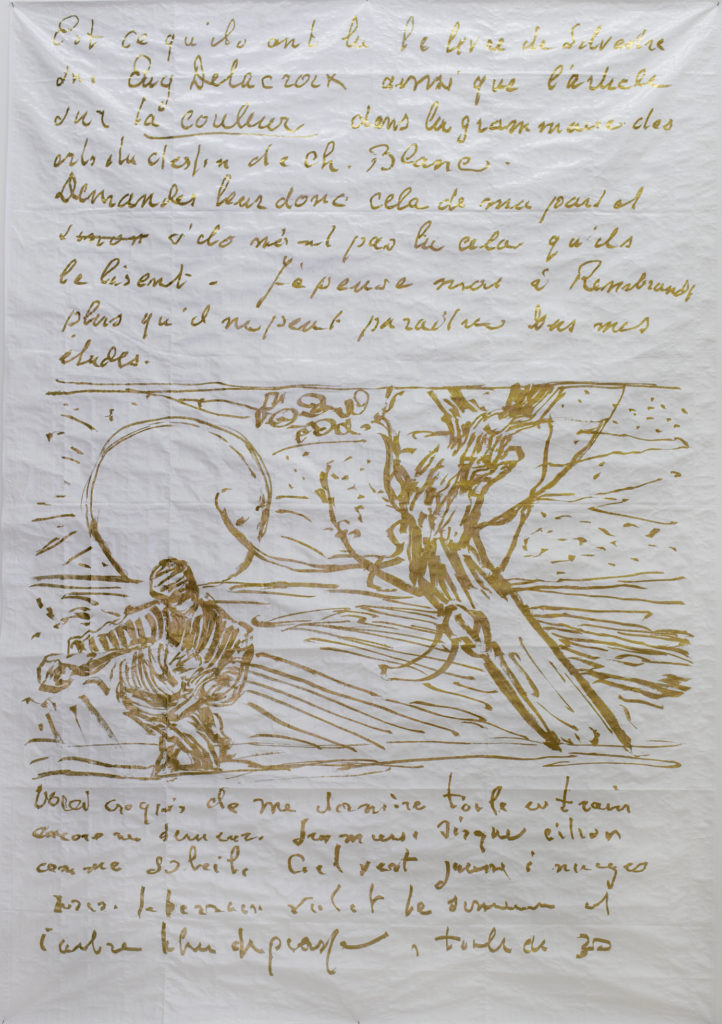 Est ce qu'ils ont lu le livre de Silvestre
sur Eug Delacroix ainsi que l'article
sur la couleur dans la grammaire des
arts du dessin de Ch. Blanc.
Demandes leur donc cela de ma part et
sinon s'ils n'ont pas lu cela qu'ils
le lisent. J'e pense moi à Rembrandt
plus qu'il ne peut paraitre dans mes
études.
Voici croquis de ma dernière toile en train
encore un semeur. Immense disque citron
comme soleil. Ciel vert jaune à nuages
roses. le terrain violet le semeur et
l'arbre bleu de prusse, toile de 30